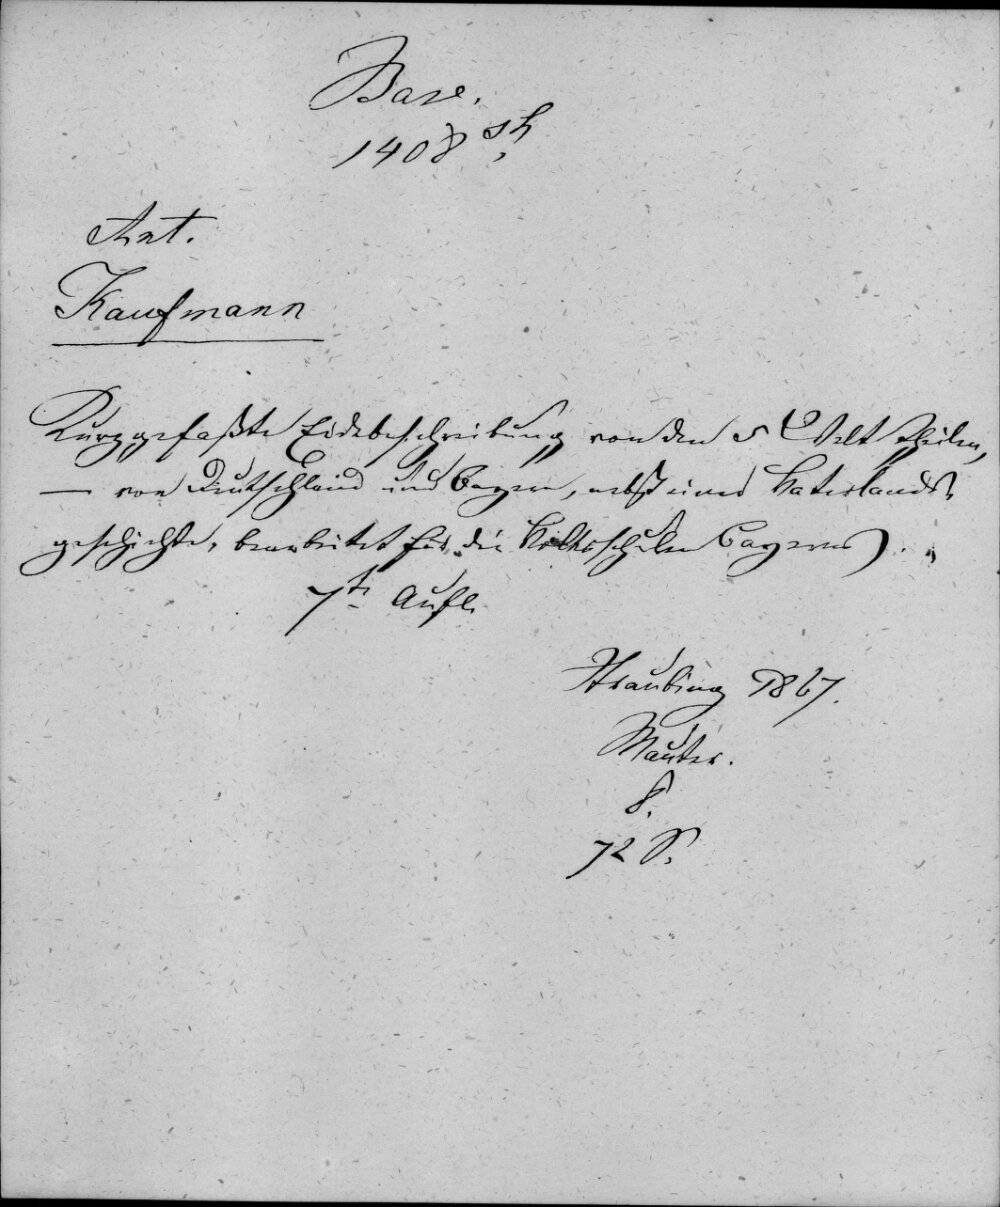 Bavar.
1408 sh,
Ant.
Kaufmann
Kurzgefaßte Erdebeschreibung von den 5 Welttheilen,
— von Deutschland und Bayern, nebst einer Vaterlands-
geschichte, bearbeitet für die Volksschulen Bayerns.
7te Aufl.
Straubing 1867.
8.
72 S.